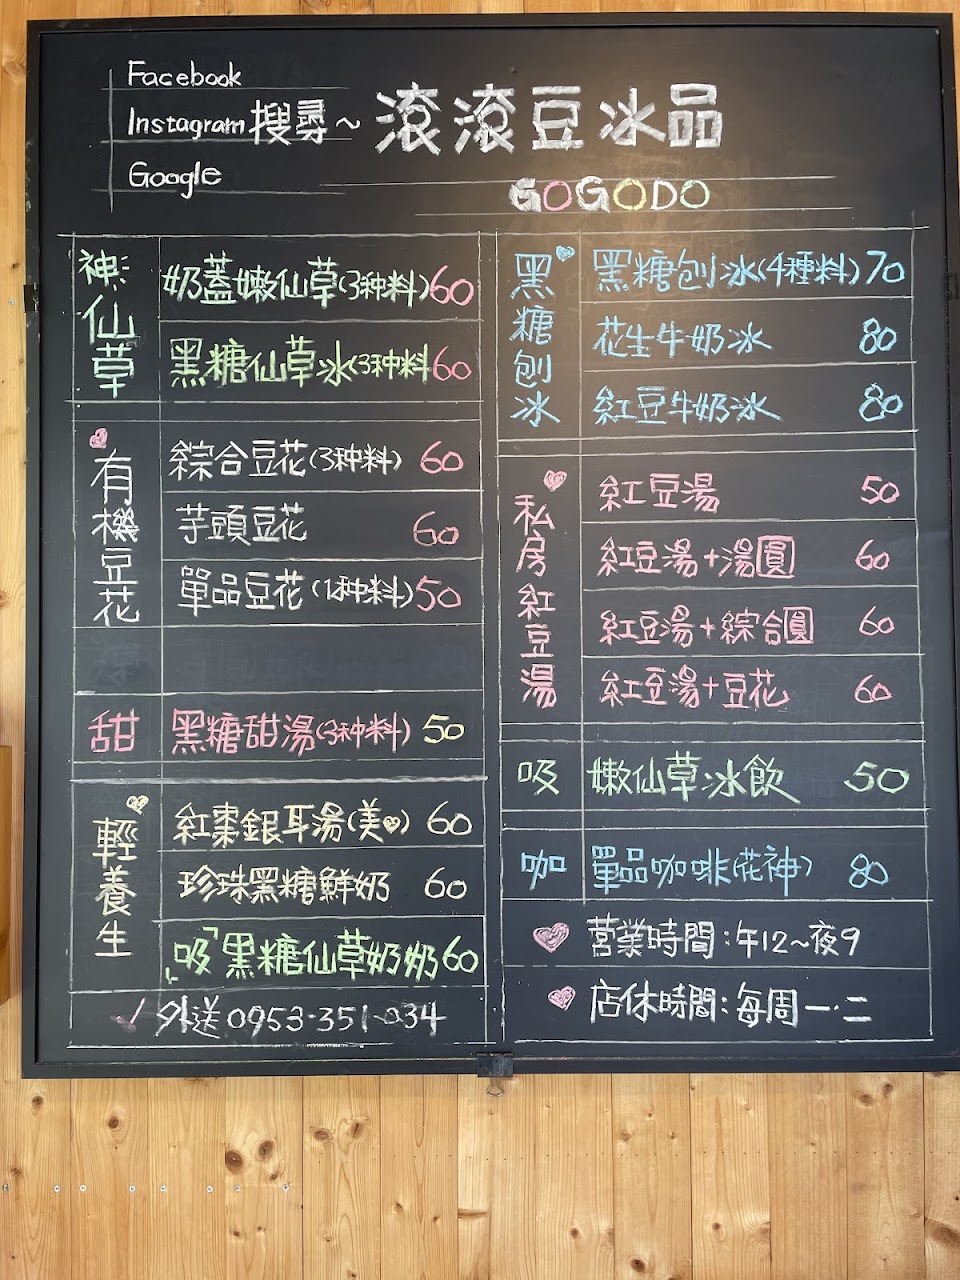 Facebook
Instagram搜尋~滾滾豆冰品
Google
GOGODO
神ミ仙草
奶蓋嫩仙草(3种料)60
黑糖仙草冰(3种料 60
有機豆花
綜合豆花(3种料) 60
芋頭豆花 60
單品豆花(1种料)50
甜
黑糖甜湯(3种料) 50
輕養生
紅棗銀耳湯(美♡) 60
珍珠黑糖鮮奶 60
吸「黑糖仙草奶奶60
外送0953-351-034
黑糖刨冰
黑糖刨冰(4種料)70
花生牛奶冰 80
紅豆牛奶冰 80
私房紅豆湯
紅豆湯 50
紅豆湯+湯圓 60
紅豆湯+綜合圓 60
紅豆湯+豆花 60
吸
嫩仙草冰飲 50
咖
單品咖啡(花神) 80
營業時間:午12~夜9
店休時間:每周一.二